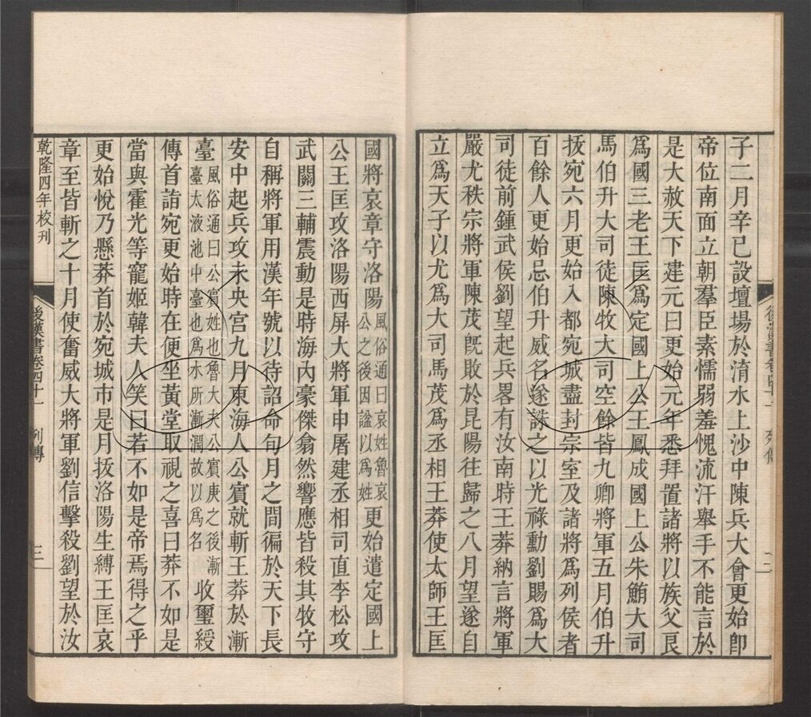 子二月辛巳設壇場於淯水上沙中陳兵大會更始卽
帝位南面立朝羣臣素懦弱羞愧流汗舉手不能言於
是大赦天下建元曰更始元年悉拜置諸將以族父良
爲國三老王匡爲定國上公王鳳成國上公朱鮪大司
馬伯升大司徒陳牧大司空餘皆九卿將軍五月伯升
拔宛六月更始入都宛城盡封宗室及諸將爲列侯者
百餘人更始忌伯升威名遂誅之以光祿勳劉賜爲大
司徒前鍾武侯劉望起兵畧有汝南時王莽納言將軍
嚴尤秩宗將軍陳茂旣敗於昆陽往歸之八月望遂自
立爲天子以尤爲大司馬茂爲丞相王莽使太師王匡
後漢書卷四十一 列傳 二
國將哀章守洛陽風俗通曰哀姓魯哀公之後因諡以爲姓更始遣定國上
公王匡攻洛陽西屏大將軍申屠建丞相司直李松攻
武關三輔震動是時海內豪傑翕然響應皆殺其牧守
自稱將軍用漢年號以待詔命旬月之間徧於天下長
安中起兵攻未央宮九月東海人公賓就斬王莽於漸
臺風俗通曰公賓姓也魯大夫公賓庚之後漸臺太液池中臺也爲水所漸潤故以爲名收璽綬
傳首詣宛更始時在便坐黃堂取視之喜曰莽不如是
當與霍光等寵姬韓夫人笑曰若不如是帝焉得之乎
更始悅乃懸莽首於宛城市是月拔洛陽生縛王匡哀
章至皆斬之十月使奮威大將軍劉信擊殺劉望於汝
乾隆四年校刊 後漢書卷四十一 列傳 三